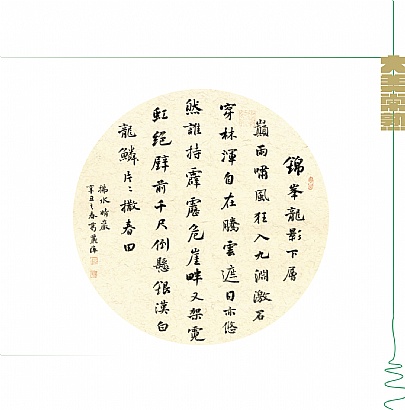 錦峯龍影下層
巔雨嘯風狂入九淵激石
穿林渾自在騰雲遮日亦悠
然誰持霹靂危崖畔又架霓
虹絕壁前千尺倒懸銀漢白
龍鱗片〻撒春田
拂水晴巖
辛丑之春
大美常熟